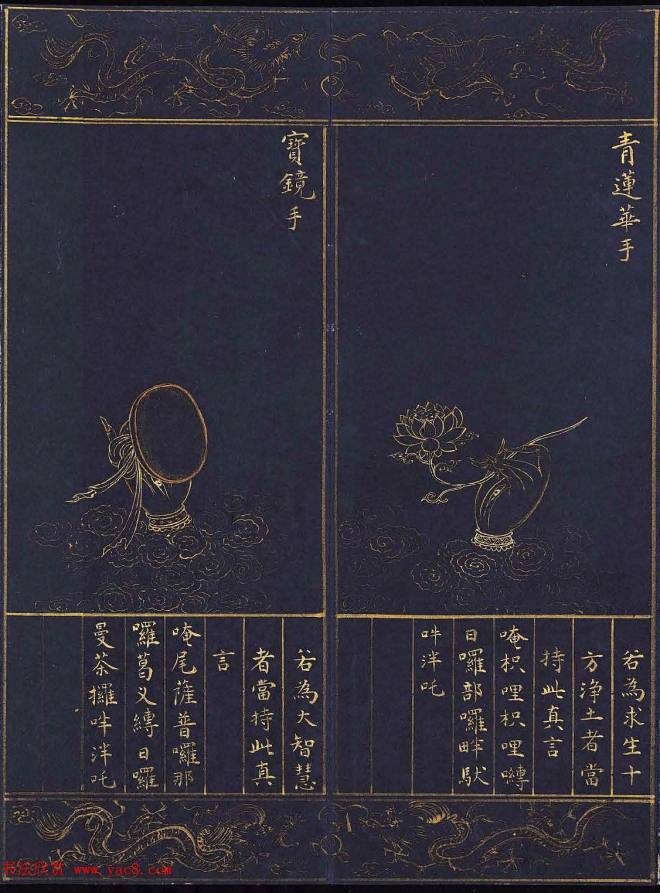 青蓮華手
若為求生十
方淨土者當
持此真言
唵枳哩枳哩嚩
日囉部囉畔馱
吽泮吒
寶鏡手
若為大智慧
者當持此真
言
唵尾薩普囉那
囉葛叉縛日囉
曼荼攞吽泮吒
书法欣赏 www.yac8.com